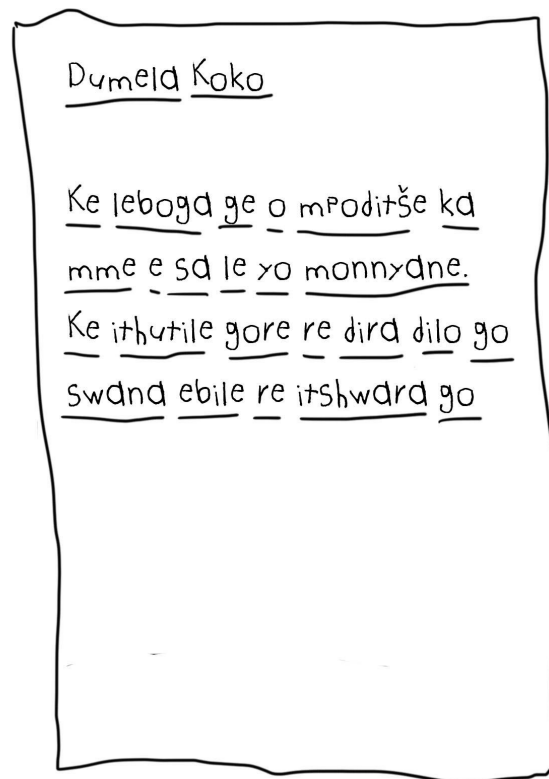 Dumela Koko
Ke leboga ge o mpoditše ka
mme e sa le yo monnyane.
Ke ithutile gore re dira dilo go
swana ebile re itshwara go